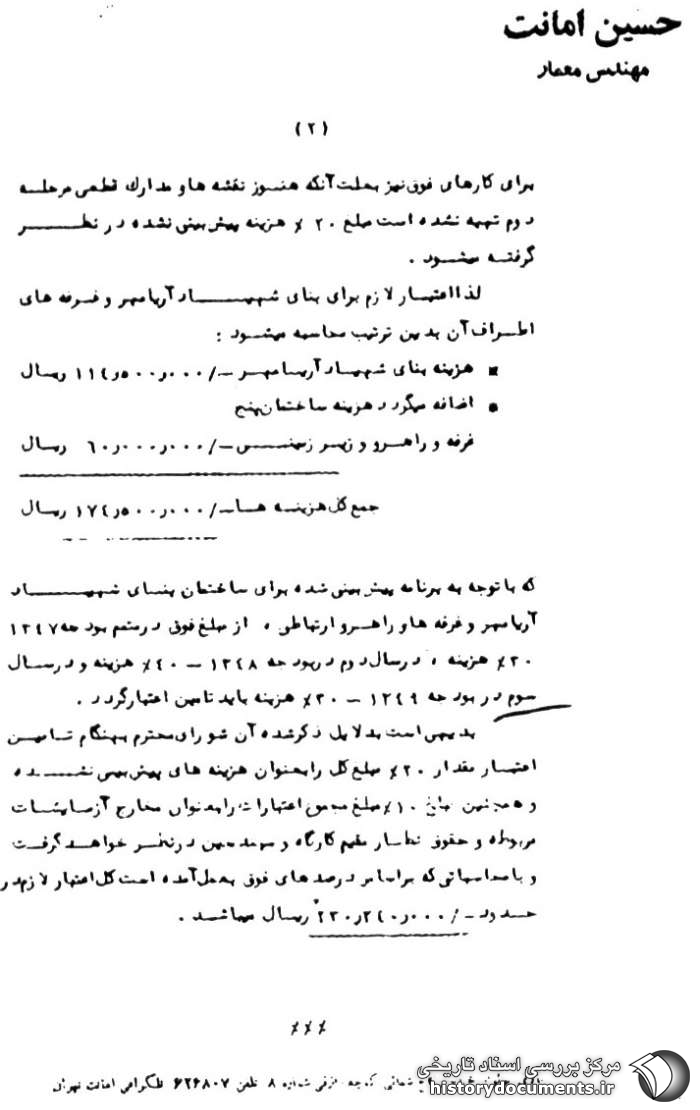 حسین امانت
مهندس معمار
(۲)
برای کارهای فوق نیز بعلت آنکه هنوز نقشه ها و مدارک قطعی مرحله
دوم تهیه نشده است مبلغ ۲۰ ٪ هزینه پیش بینی نشده در نظر
گرفته میشود .
لذا اعتبار لازم برای بنای شهیاد آریامهر و غرفه های
اطراف آن بدین ترتیب محاسبه میشود :
هزینه بنای شهیاد آریامهر -/۱۱۴٫۵۰۰٫۰۰۰ ریال
اضافه میگردد هزینه ساختمان پنج
غرفه و راهرو و زیر زمینس -/۶۰٫۰۰۰٫۰۰۰ ریال
جمع کل هزینه ها -/۱۷۴٫۵۰۰٫۰۰۰ ریال
که با توجه به برنامه پیش بینی شده برای ساختمان بنای شهیاد
آریامهر و غرفه ها و راهرو ارتباطی ، از مبلغ فوق در متمم بودجه ۱۳۴۷
۳۰٪ هزینه ، در سال دوم در بودجه ۱۳۴۸ – ۴۰٪ هزینه و در سال
سوم در بودجه ۱۳۴۹ – ۳۰٪ هزینه باید تامین اعتبار گردد .
بدیهی است بدلایل ذکر شده آن شورای محترم بهنگام تامین
اعتبار مقدار ۲۰٪ مبلغ کل را بعنوان هزینه های پیش بینی نشده
و همچنین مبلغ ۱۰٪ مبلغ مجموع اعتبارات را بعنوان مخارج آزمایشات
مربوطه و حقوق نظار مقیم کارگاه و مهندسین در نظر خواهد گرفت
و با محاسباتی که براساس درصدهای فوق بعمل آمده است کل اعتبار لازم در
حدود -/۲۳۰٫۳۴۰٫۰۰۰ ریال میباشد .
٪٪٪
شمالی کوچه غزنی شماره ۸ تلفن ۶۲۶۸۰۷ تلگرافی امانت تهران
مرکز بررسی اسناد تاریخی
historydocuments.ir